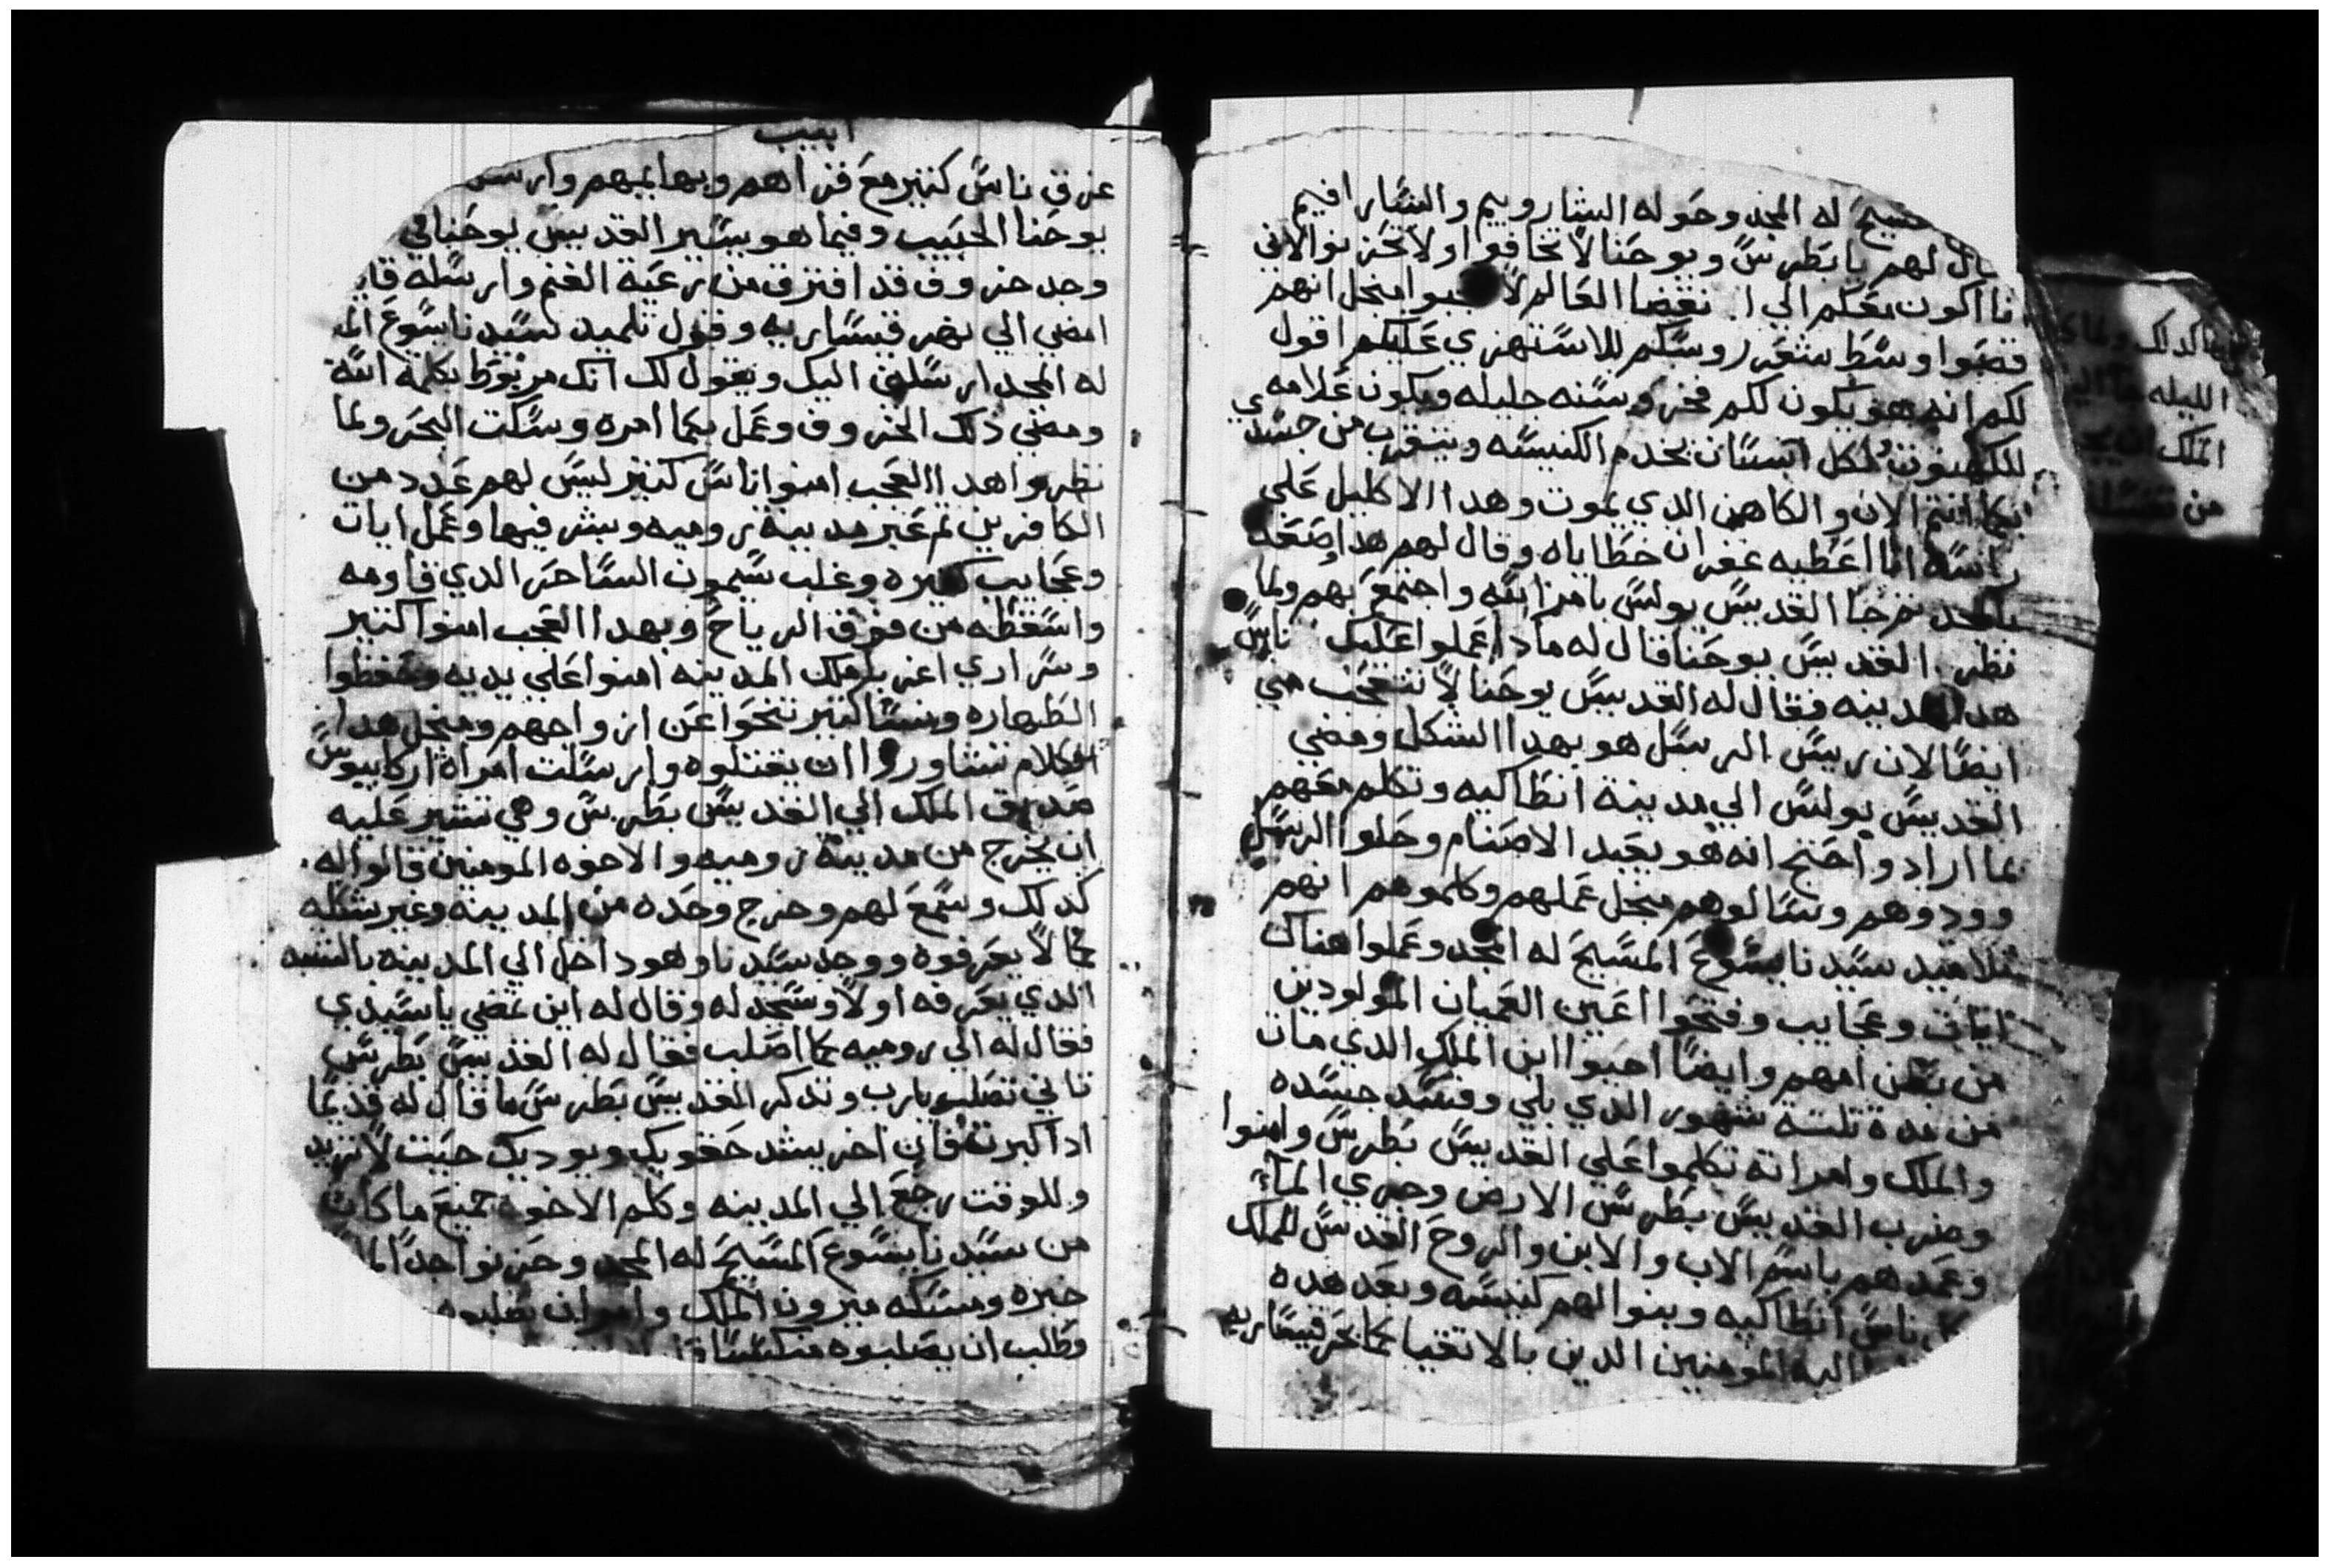 له المجد وحوله الشاروبيم والسارافيم
قال لهم يا بطرس ويوحنا لا تخافوا ولا تحزنوا لاني
انا اكون معكم الي انقضا العالم لا منجل انهم
قصوا وسط شعر روسكم للاستهزي عليكم اقول
لكم انه هو يكون لكم فخر وسنه جليله ويكون علامه
للكهنوت لكل انسان يخدم الكنيسه ويتقرب من جسدي
انتم الان والكاهن الدي يموت وهدا الاكليل علي
راسه انا اعطيه غفران خطاياه وقال لهم هدا وصعد
بالمجد القديس بولس بامر الله واجتمع بهم ولما
نظر القديس يوحنا قال له مادا عملوا عليك ناس
هده المدينه فقال له القديس يوحنا لا تتعجب مني
ايضا لان ريس الرسل هو بهدا الشكل ومضي
القديس بولس الي مدينة انطاكيه وتكلم معهم
بما اراد واحتج انه هو يعبد الاصنام وحلوا الرسل
وودوهم وسالوهم منجل عملهم وكلموهم انهم
تلاميد سيدنا يسوع المسيح له المجد وعملوا هناك
ايات وعجايب وفتحوا اعين العميان المولودين
من بطن امهم وايضا احيوا ابن الملك الدي مات
من مدة تلتة شهور الدي بلي وفسد جسده
والملك وامراته تكلموا علي القديس بطرس وامنوا
وضرب القديس بطرس الارض وجري الماء
وعمدهم باسم الاب والابن والروح القدس للملك
ناس انطاكيه وبنوا لهم كنيسه وبعد هده
اليه المومنين الدين بالاتقيا بحر قيساريه
ابيب
غرق ناس كتير مع قراهم وبهايمهم وارسل
يوحنا الحبيب وفيما هو يسير القديس يوحنا في
وجد خروف قد افترق من رعية الغنم وارسله
امضي الي نهر قيساريه وقول تلميد لسيدنا يسوع
له المجد ارسلني اليك ويقول لك انك مربوط بكلمة الله
ومضي دلك الخروف وعمل بما امره وسكت البحر ولما
نظروا هدا العجب امنوا ناس كتير ليس لهم عدد من
الكافرين تم عبر مدينة روميه وبشر فيها وعمل ايات
وعجايب كتيره وغلب سيمون الساحر الدي قاومه
واسقطه من فوق الرياح وبهدا العجب امنوا كتير
وسراري اغريبا ملك المدينه امنوا علي يديه وحفظوا
الطهاره ونسا كتير تنحوا عن ازواجهم ومنجل هدا
الكلام تشاوروا ان يقتلوه وارسلت امراة اركابيوس
صديق الملك الي القديس بطرس وهي تشير عليه
ان يخرج من مدينة روميه والاخوه المومنين قالوا له
كدلك وسمع لهم وخرج وحده من المدينه وغير شكله
كما لا يعرفوه ووجد سيدنا وهو داخل الي المدينه بالشبه
الدي يعرفه اولا وسجد له وقال له اين تمضي يا سيدي
فقال له الي روميه كما اصلب فقال له القديس بطرس
تاني تصلب يارب وتدكر القديس بطرس ما قال له قديما
ادا كبرت فان اخر يشد حقويك ويوديك حيت لا تريد
وللوقت رجع الي المدينه وكلم الاخوه جميع ما كان
من سيدنا يسوع المسيح له المجد وحزنوا جدا
خبره ومسكه نيرون الملك وامر ان يصلبوه
وطلب ان يصلبوه منكسا